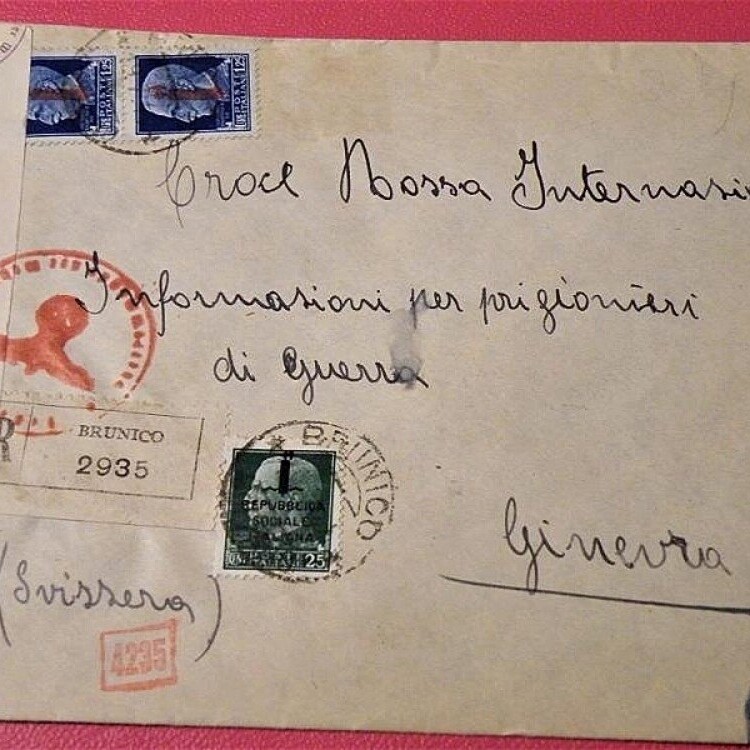 POSTE ITALIANE 1,25
POSTE ITALIANE 1,25
Croce Rossa Internazi
Informazioni per prigionieri
di guerra
R
BRUNICO
2935
BRUNICO
REPUBBLICA
SOCIALE
ITALIANA
25
Ginevra
(Svizzera)
4235